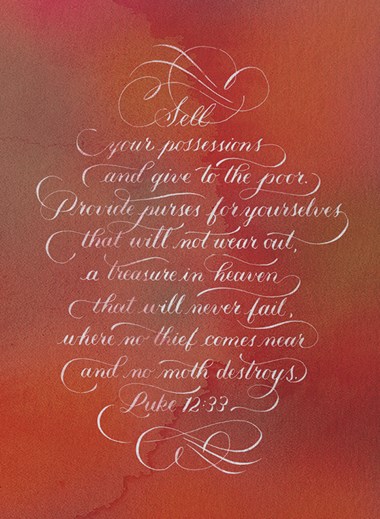 Sell
your possessions
and give to the poor.
Provide purses for yourselves
that will not wear out,
a treasure in heaven
that will never fail,
where no thief comes near
and no moth destroys.
Luke 12:33